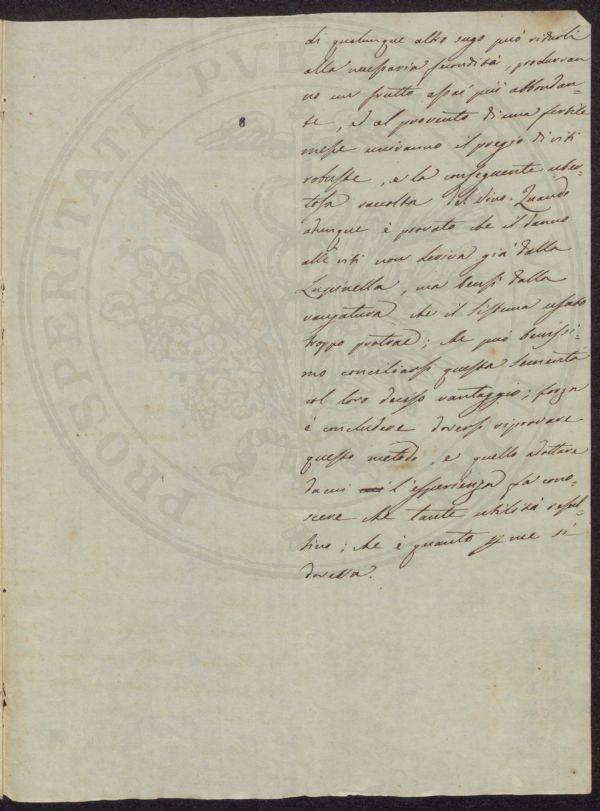 di qualunque altro sugo può ridurli
alla necessaria fecondità, produrran
no un frutto assai più abbondan=
te, ed al provento di una fertile
messe uniranno il pregio di viti
robuste, e la conseguente uber=
tosa raccolta del vino. Quando
adunque è provato che il danno
alle viti non deriva già dalla
Lupinella, ma bensì dalla
vangatura che il sistema usato
troppo protrae; che può benissi=
mo conciliarsi questa sementa
col loro decisо vantaggio; forza
è concludere doversi riprovare
questo metodo, e quello adottare
da cui l'esperienza fa cono=
scere che tante utilità resul=
tino; che è quanto per me si
doveva.
6
PROSPERITATI PVB